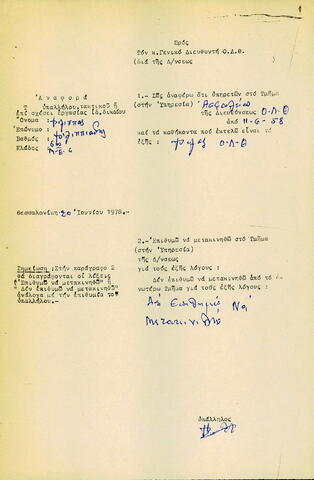 1
Πρός
Τόν κ.Γενικό Διευθυντή Ο.Λ.Θ.
(διά τῆς Δ/νσεως
Ἀναφορά
Τ ὑπαλλήλου,τακτικοῦ ἤ
ἐπί σχέσει ἐργασίας ἰδ.δικαίου
Ὄνομα : Φίλιππας
Ἐπώνυμο : Φιλιππιάδης
Βαθμός : 6ος
Κλάδος : ΜΕ6
1.- Σᾶς ἀναφέρω ὅτι ὑπηρετῶ στό Τμῆμα
(στήν Ὑπηρεσία) Ασφαλείας
τῆς Διευθύνσεως Ο.Λ.Θ
ἀπό 11-6-58
καί τά καθήκοντα πού ἐκτελῶ εἶναι τά
ἑξῆς : φύλαξ Ο.Λ.Θ
Θεσσαλονίκη 20 Ἰουνίου 1978.-
2.-Ἐπιθυμῶ νά μετακινηθῶ στό Τμῆμα
(στήν Ὑπηρεσία)
τῆς Δ/νσεως
γιά τούς ἑξῆς λόγους :
Σημείωση :Στήν παράγραφο 2
θά διαγράφονται οἱ λέξεις
"Ἐπιθυμῶ νά μετακινηθῶ" ἤ
" Δέν ἐπιθυμῶ νά μετακινηθῶ"
ἀνάλογα μέ τήν ἐπιθυμία τοῦ
ὑπαλλήλου.
Δέν ἐπιθυμῶ νά μετακινηθῶ ἀπό τό ἀ-
νωτέρω Τμῆμα γιά τούς ἑξῆς λόγους :
Να
ὑπάλληλος